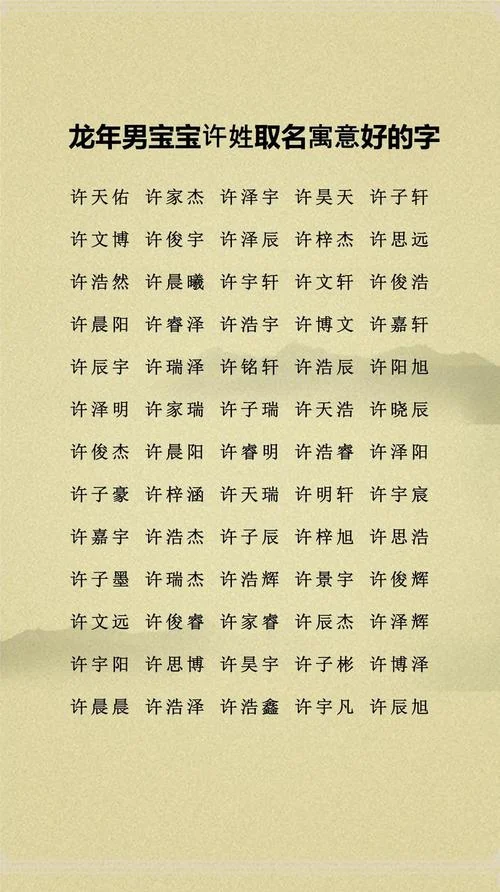 龙年男宝宝许姓取名寓意好的字
许天佑 许家杰 许泽宇 许昊天 许子轩
许文博 许俊宇 许泽辰 许梓杰 许思远
许浩然 许晨曦 许宇轩 许文轩 许俊浩
许晨阳 许睿泽 许浩宇 许博文 许嘉轩
许辰宇 许瑞泽 许铭轩 许浩辰 许阳旭
许泽明 许家瑞 许子瑞 许天浩 许晓辰
许俊杰 许晨阳 许睿明 许浩睿 许泽阳
许子豪 许梓涵 许天瑞 许明轩 许宇宸
许嘉宇 许浩杰 许子辰 许梓旭 许思浩
许子墨 许瑞杰 许浩辉 许景宇 许俊辉
许文远 许俊睿 许家睿 许辰杰 许泽辉
许宇阳 许思博 许昊宇 许子彬 许博泽
许晨晨 许浩泽 许浩鑫 许宇凡 许辰旭